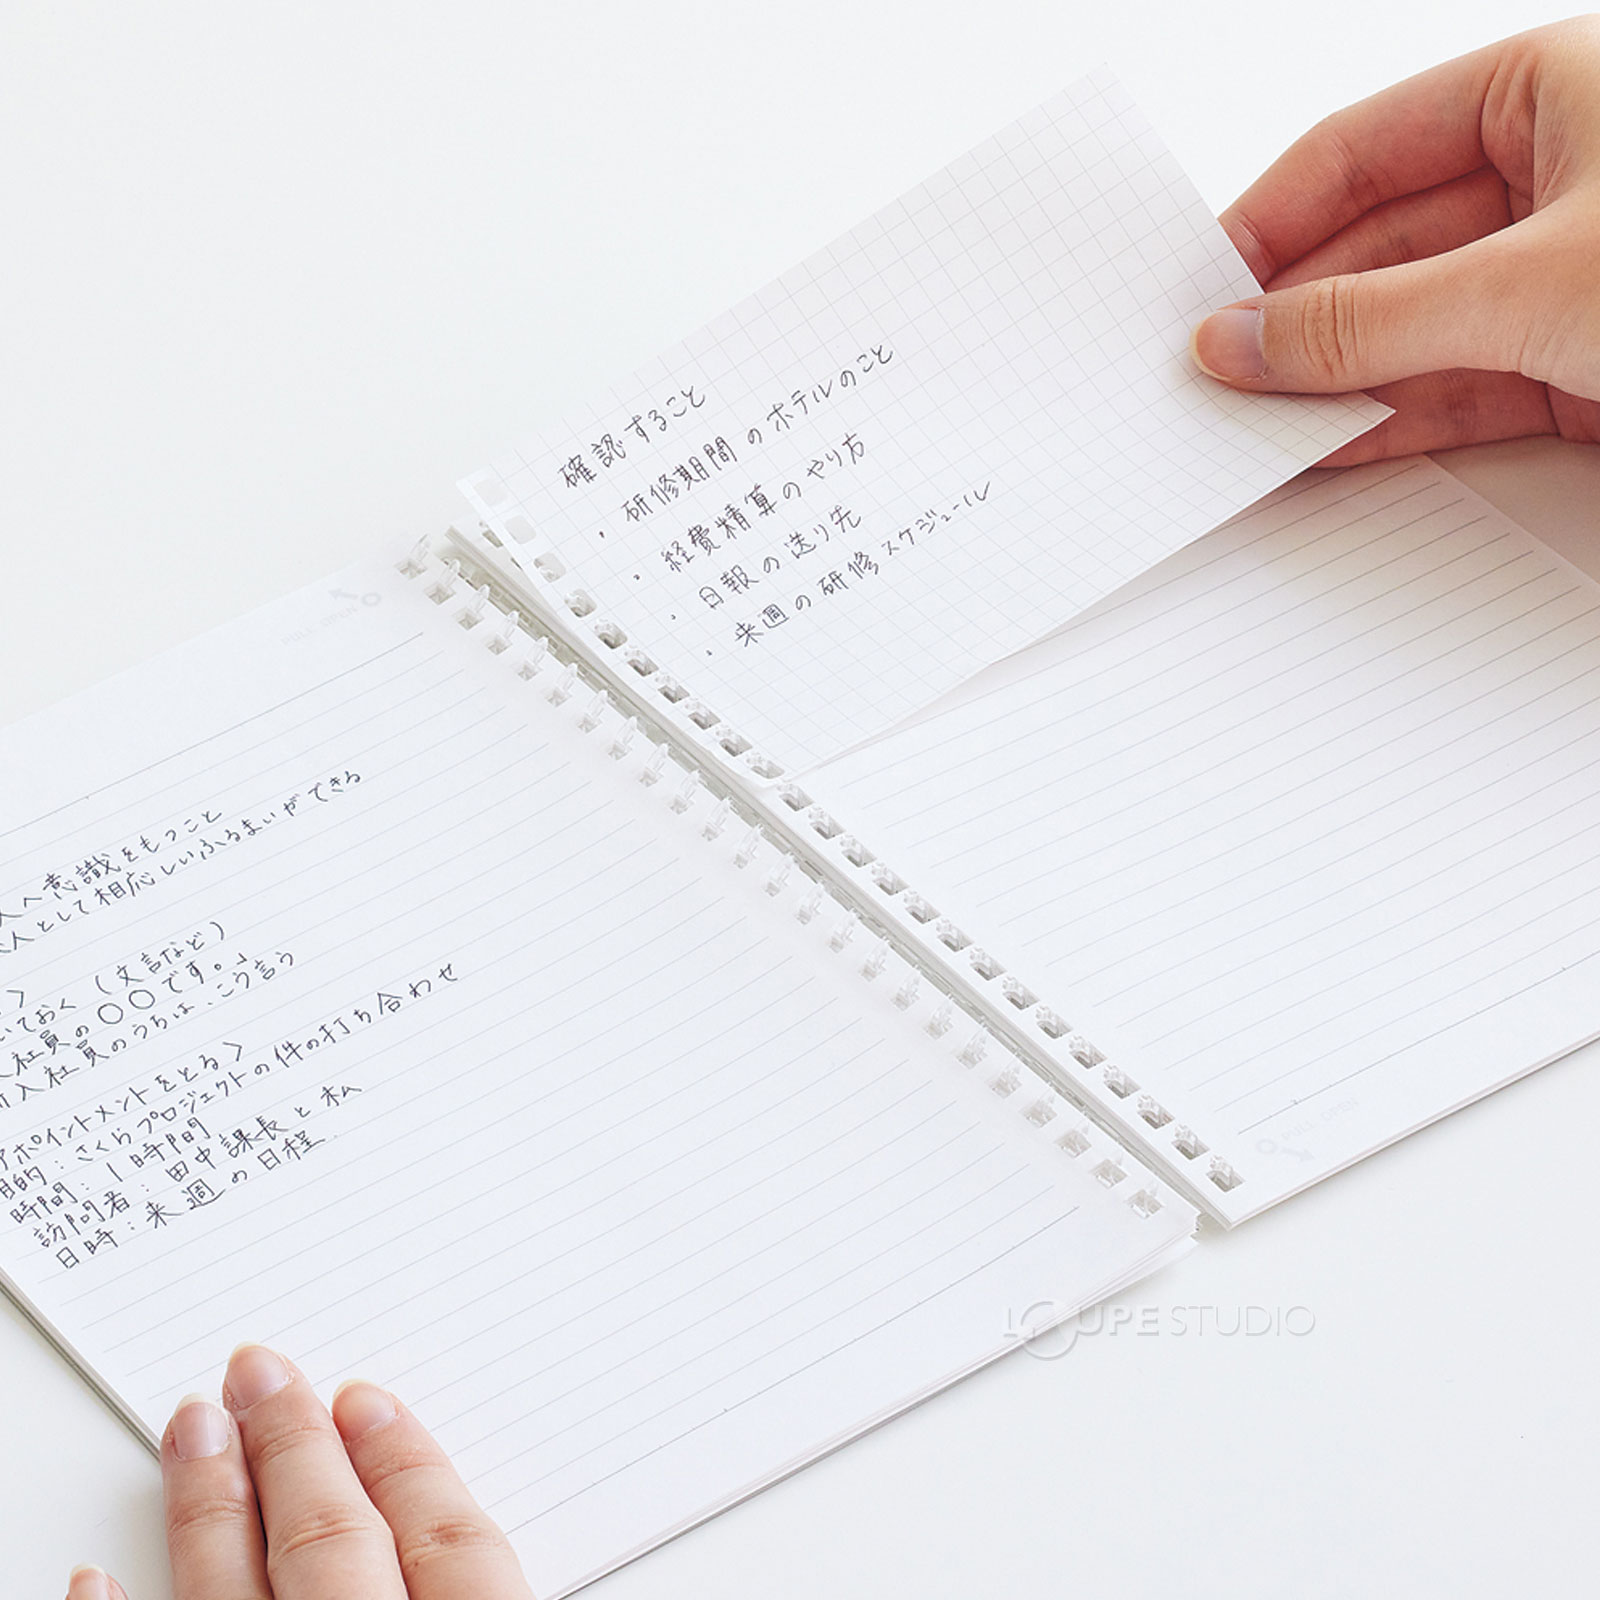 PULL OPEN
人へ意識をもつこと
人として相応しいふるまいができる
いておく（文言など）
社員の〇〇です。」
入社員のうちは、こう言う
アポイントメントをとる〉
目的：さくらプロジェクトの件の打ち合わせ
時間：1時間
訪問者：田中課長と私
日時：来週の日程
確認すること
・研修期間のホテルのこと
・経費精算のやり方
・日報の送り先
・来週の研修スケジュール
PULL OPEN
LOUPE STUDIO